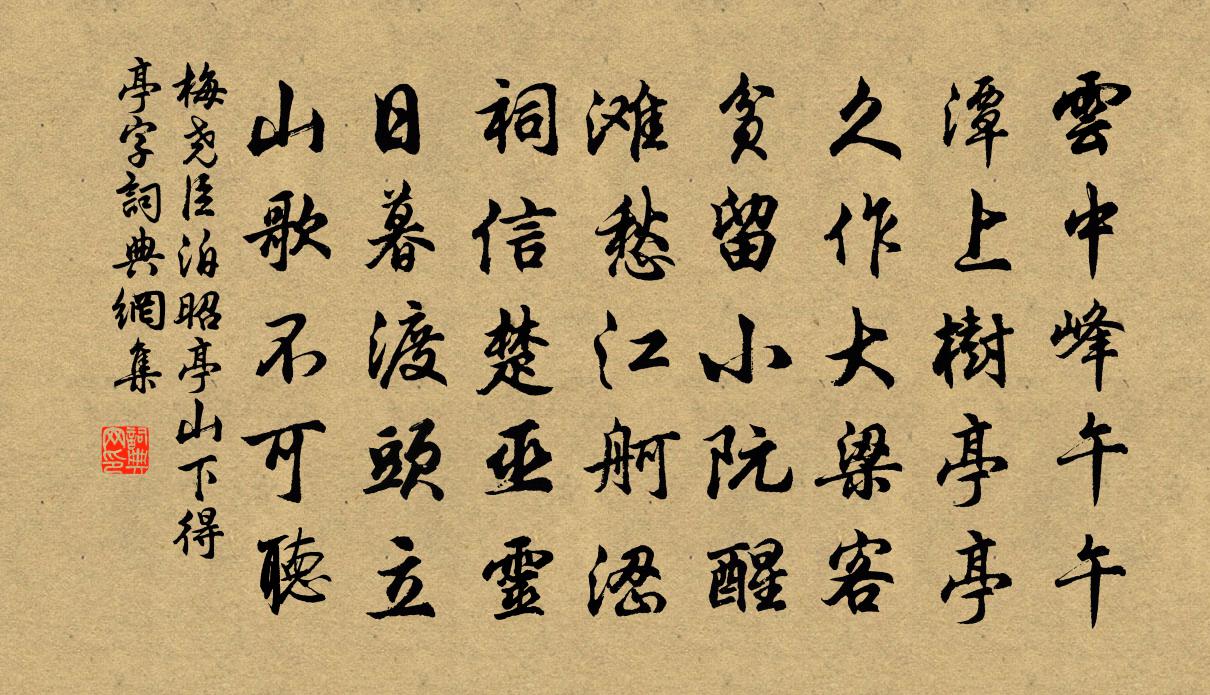 雲中峰午午
潭上樹亭亭
久作大梁客
贫留小阮醒
滩愁江舸涩
祠信楚巫靈
日暮渡頭立
山歌不可聽
梅尧臣泊昭亭山下得
亭字詞典網集
詞典网印